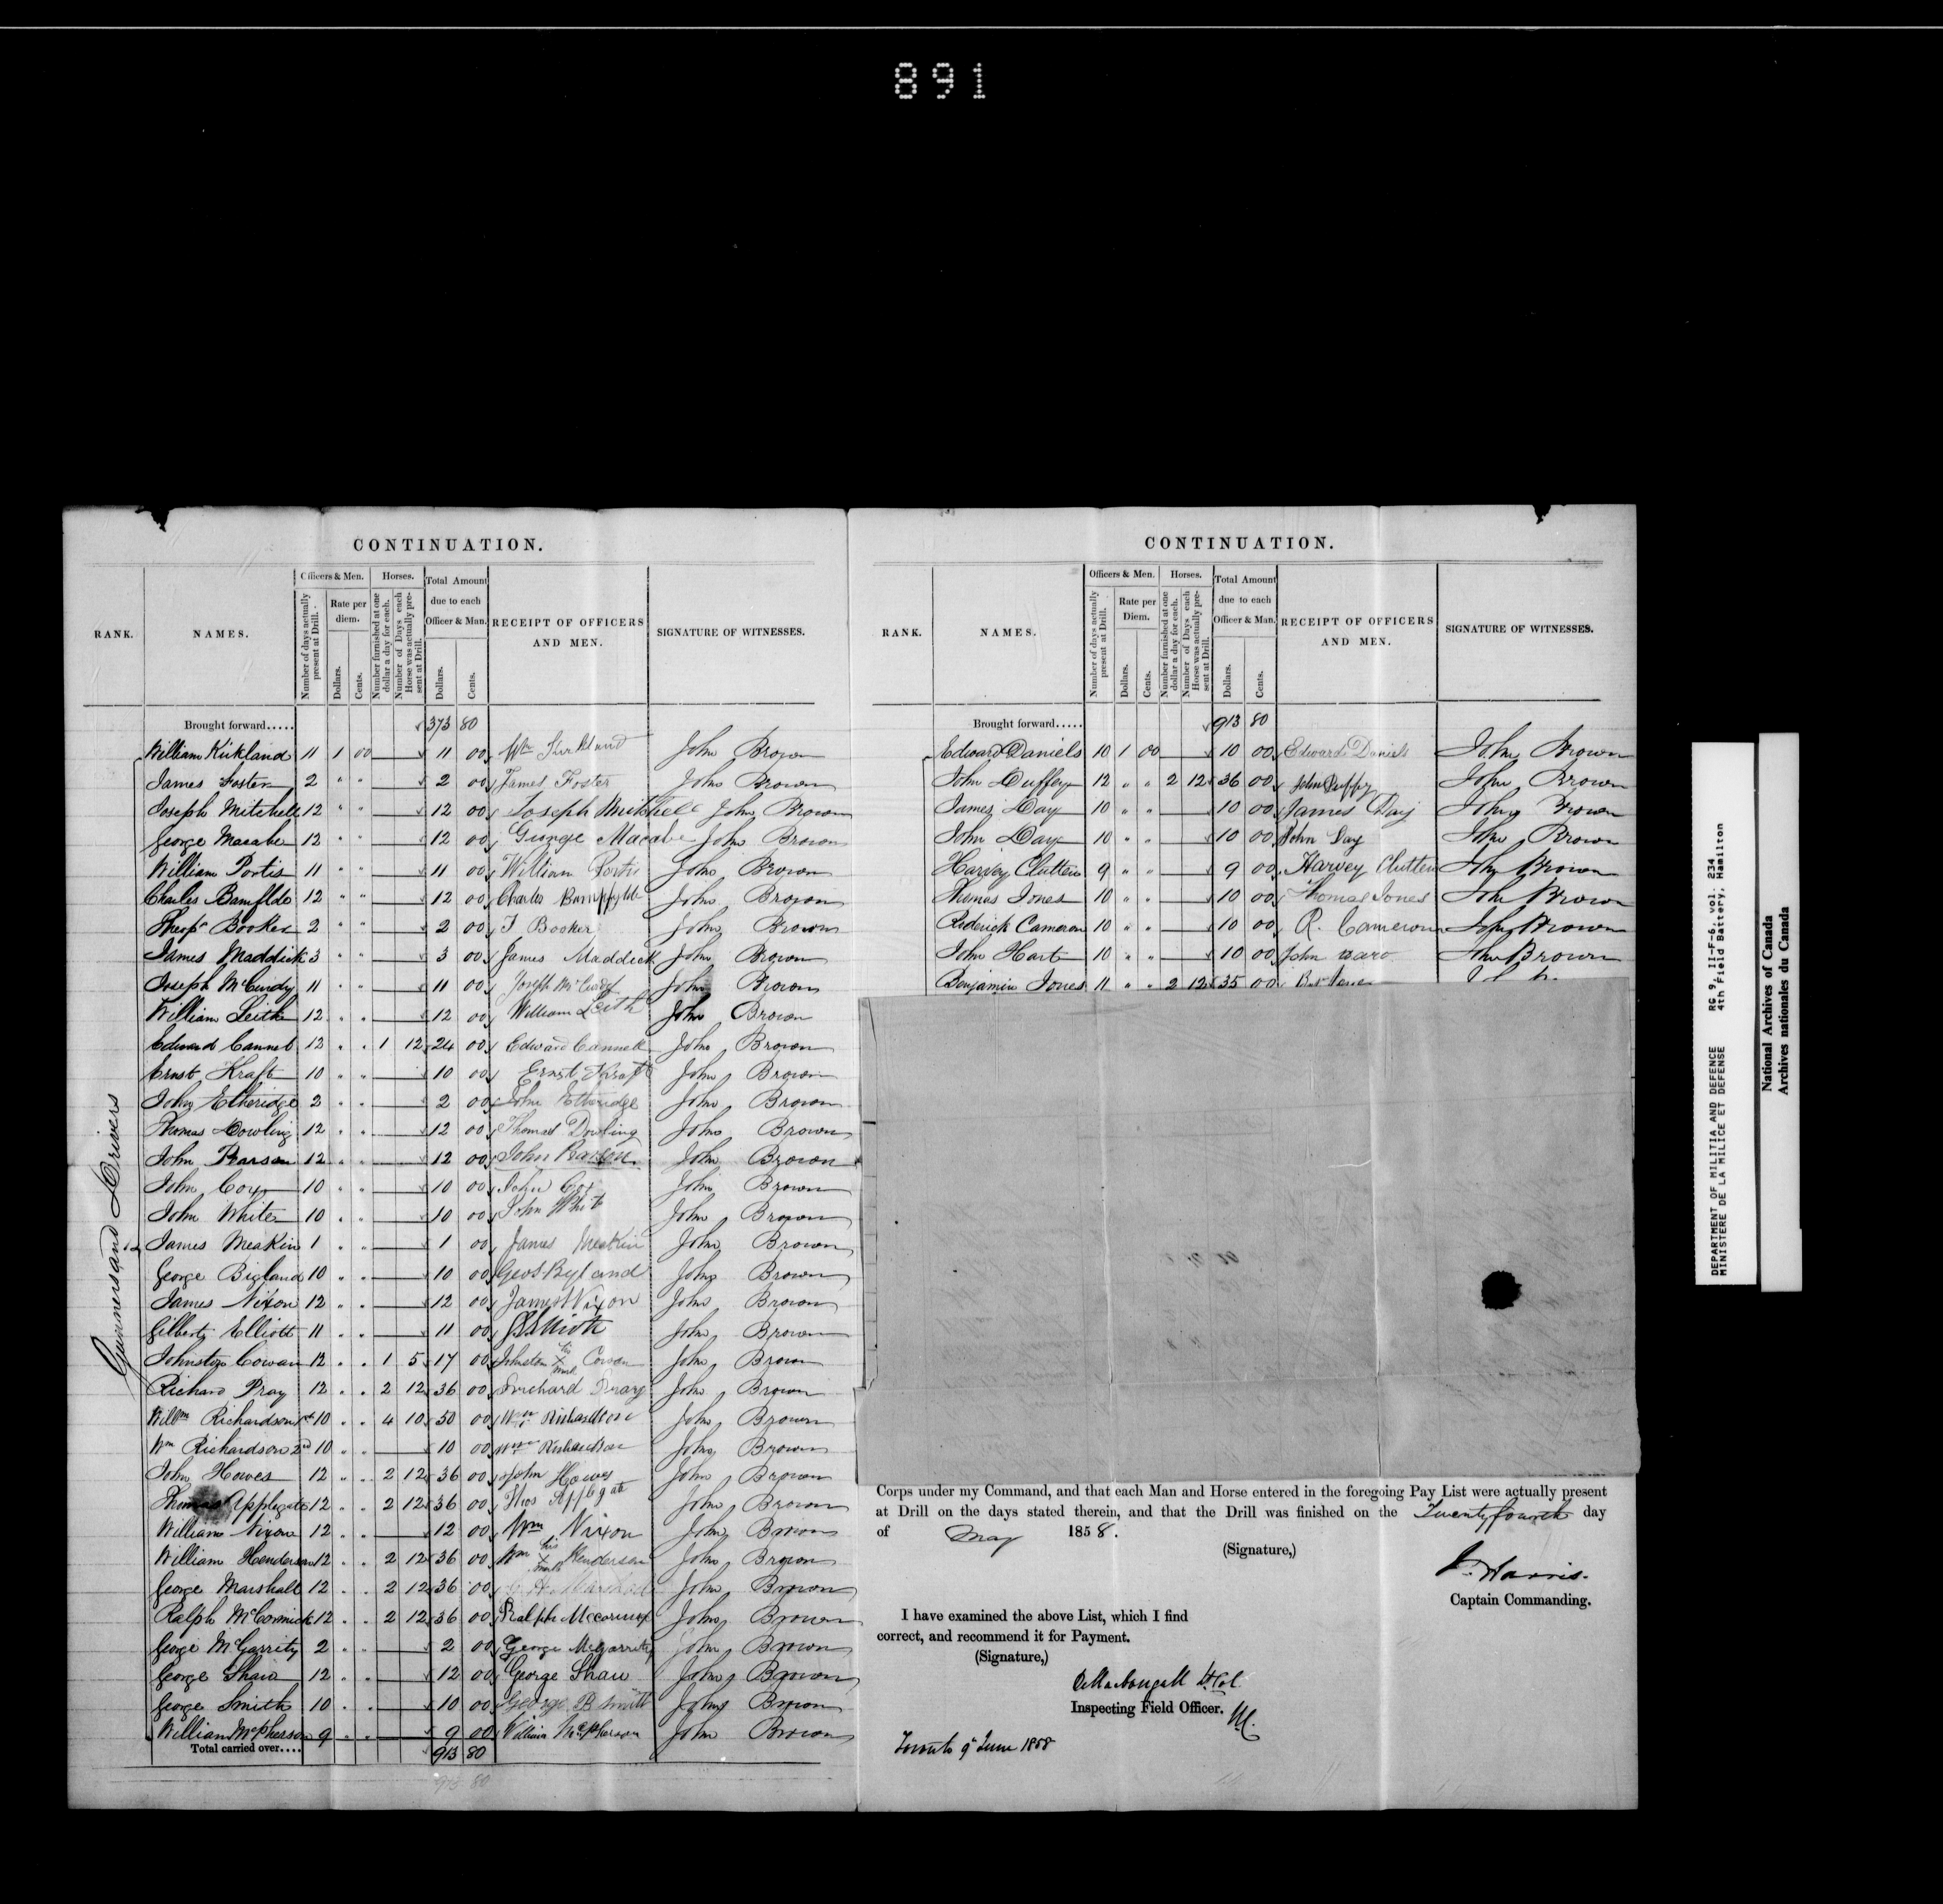 891
CONTINUATION.
RANK. NAMES. Officers & Men. Number of days actually present at Drill. Rate per diem. Dollars. Cents. Horses. Number furnished at one dollar a day for each. Number of Days each Horse was actually present at Drill. Total Amount due to each Officer & Man. Dollars. Cents. RECEIPT OF OFFICERS AND MEN. SIGNATURE OF WITNESSES.
Gunners and Drivers
Brought forward..... 373 80
William Kirkland 11 1 00 11 00 Wm Kirkland John Brown
James Foster 2 " " 2 00 James Foster John Brown
Joseph Mitchell 12 " " 12 00 Joseph Mitchell John Brown
George Macabe 12 " " 12 00 George Macabe John Brown
William Portis 11 " " 11 00 William Portis John Brown
Charles Bamflde 12 " " 12 00 Charles Bampfylde John Brown
Booker 2 " " 2 00 T Booker John Brown
James Maddick 3 " " 3 00 James Maddick John Brown
Joseph McCurdy 11 " " 11 00 Joseph McCurdy John Brown
William Leith 12 " " 12 00 William Leith John Brown
Edward Cannel 12 " " 1 12 24 00 Edward Cannell John Brown
Ernst Kraft 10 " " 10 00 Ernst Kraft John Brown
John Etheridge 2 " " 2 00 John Etheridge John Brown
Thomas Dowling 12 " " 12 00 Thomas Dowling John Brown
John Pearson 12 " " 12 00 John John Brown
John Cox 10 " " 10 00 John Cox John Brown
John White 10 " " 10 00 John White John Brown
James Meakin 1 " " 1 00 James Meakin John Brown
George Bigland 10 " " 10 00 Geo Byland John Brown
James Nixon 12 " " 12 00 James Nixon John Brown
Gilbert Elliott 11 " " 11 00 G Elliott John Brown
Johnston Cowan 12 " " 1 5 17 00 Johnston his X mark Cowan John Brown
Richard Pray 12 " " 2 12 36 00 Richard Pray John Brown
Willm Richardson 1st 10 " " 4 10 50 00 Wm Richardson John Brown
Wm Richardson 2nd 10 " " 10 00 Wm Richardson John Brown
John Howes 12 " " 2 12 36 00 John Howes John Brown
Thomas Applegate 12 " " 2 12 36 00 Thos Applegate John Brown
William Nixon 12 " " 12 00 Wm Nixon John Brown
William Henderson 12 " " 2 12 36 00 Wm his X mark Henderson John Brown
George Marshall 12 " " 2 12 36 00 Marshall John Brown
Ralph McCormick 12 " " 2 12 36 00 Ralph Mccormick John Brown
George McGarrity 2 " " 2 00 George McGarrity John Brown
George Shaw 12 " " 12 00 George Shaw John Brown
George Smith 10 " " 10 00 George B Smith John Brown
William McPherson 9 " " 9 00 William McPherson John Brown
Total carried over.... 913 80
913 80
CONTINUATION.
RANK. NAMES. Officers & Men. Number of days actually present at Drill. Rate per Diem. Dollars. Cents. Horses. Number furnished at one dollar a day for each. Number of Days each Horse was actually present at Drill. Total Amount due to each Officer & Man. Dollars. Cents. RECEIPT OF OFFICERS AND MEN. SIGNATURE OF WITNESSES.
Brought forward..... 913 80
Edward Daniels 10 1 00 10 00 Edward Daniels John Brown
John Duffey 12 " " 2 12 36 00 John Duffy John Brown
James Day 10 " " 10 00 James Day John Brown
John Day 10 " " 10 00 John Day John Brown
Harvey Clutten 9 " " 9 00 Harvey Clutten John Brown
Thomas Jones 10 " " 10 00 Thomas Jones John Brown
Roderick Cameron 10 " " 10 00 R. Cameron John Brown
John Hart 10 " " 10 00 John John Brown
Benjamin Jones 11 " " 2 12 35 00
Corps under my Command, and that each Man and Horse entered in the foregoing Pay List were actually present
at Drill on the days stated therein, and that the Drill was finished on the Twenty fourth day
of May 1858.
(Signature,)
J. Harris.
Captain Commanding.
I have examined the above List, which I find
correct, and recommend it for Payment.
(Signature,)
D MacDougall Lt Col.
Inspecting Field Officer.
Toronto 9th June 1858
DEPARTMENT OF MILITIA AND DEFENCE RG 9, II-F-6, vol. 234
MINISTERE DE LA MILICE ET DEFENSE 4th Field Battery, Hamilton
National Archives of Canada
Archives nationales du Canada